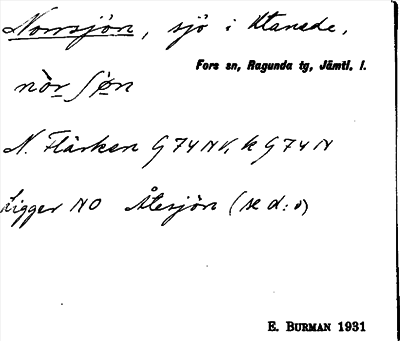 Norrsjön, sjö i Utanede,
Fors sn, Ragunda tg, Jämtl. l.
N. Flärken G 74 NV, k G 74 N
Ligger NO Åtesjön (se d:o)
E. BURMAN 1931